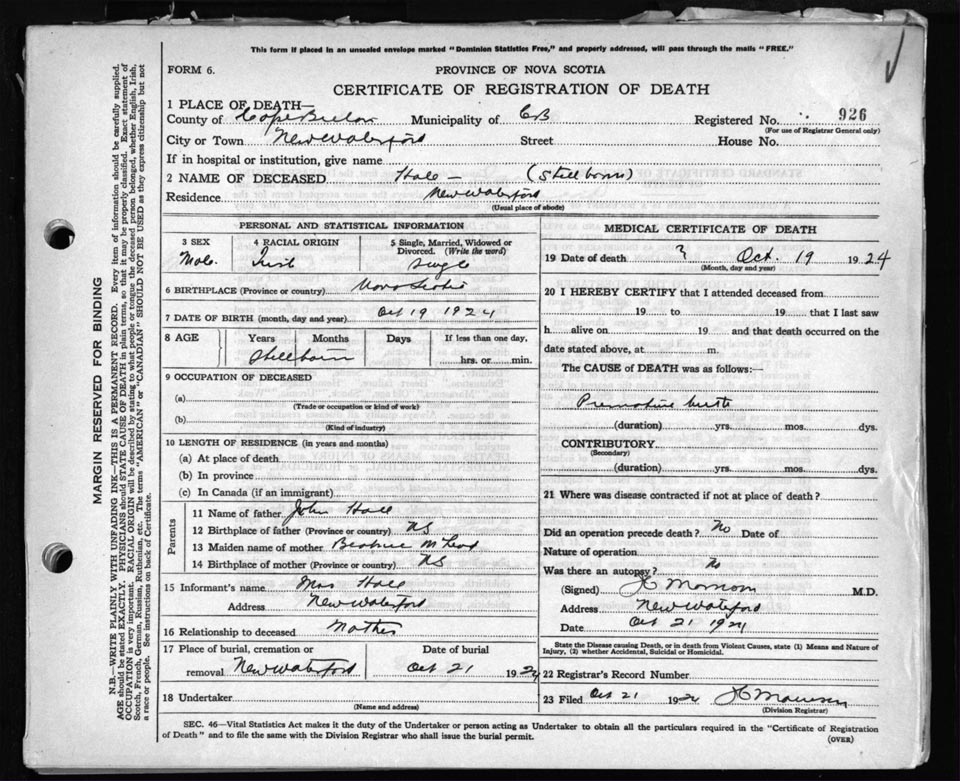 This form if placed in an unsealed envelope marked "Dominion Statistics Free," and properly addressed, will pass through the mails "FREE."
FORM 6.
PROVINCE OF NOVA SCOTIA
CERTIFICATE OF REGISTRATION OF DEATH
1 PLACE OF DEATH—
County of Cape Breton Municipality of CB Registered No. 926
(For use of Registrar General only)
City or Town New Waterford Street House No.
If in hospital or institution, give name
2 NAME OF DECEASED Hall — (Stillborn)
Residence New Waterford
(Usual place of abode)
PERSONAL AND STATISTICAL INFORMATION
3 SEX 4 RACIAL ORIGIN 5 Single, Married, Widowed or Divorced. (Write the word)
Male Irish Single
6 BIRTHPLACE (Province or country) Nova Scotia
7 DATE OF BIRTH (month, day and year) Oct 19 1924
8 AGE Years Months Days If less than one day,
Stillborn hrs. or min.
9 OCCUPATION OF DECEASED
(a)
(Trade or occupation or kind of work)
(b)
(Kind of industry)
10 LENGTH OF RESIDENCE (in years and months)
(a) At place of death
(b) In province
(c) In Canada (if an immigrant)
Parents
11 Name of father John Hall
12 Birthplace of father (Province or country) NS
13 Maiden name of mother Beatrice McLeod
14 Birthplace of mother (Province or country) NS
15 Informant's name Mrs Hall
Address New Waterford
16 Relationship to deceased Mother
17 Place of burial, cremation or Date of burial
removal New Waterford Oct 21 1924
18 Undertaker
(Name and address)
MEDICAL CERTIFICATE OF DEATH
19 Date of death ? Oct. 19 1924
(Month, day and year)
20 I HEREBY CERTIFY that I attended deceased from
19 to 19 that I last saw
h alive on 19 and that death occurred on the
date stated above, at m.
The CAUSE of DEATH was as follows:—
Premature birth
(duration) yrs. mos. dys.
CONTRIBUTORY
(Secondary)
(duration) yrs. mos. dys.
21 Where was disease contracted if not at place of death?
Did an operation precede death? No Date of
Nature of operation
Was there an autopsy? No
(Signed) M.D.
Address New Waterford
Date Oct 21 1924
State the Disease causing Death, or in death from Violent Causes, state (1) Means and Nature of
Injury, (2) whether Accidental, Suicidal or Homicidal.
22 Registrar's Record Number
23 Filed Oct 21 1924
(Division Registrar)
SEC. 46—Vital Statistics Act makes it the duty of the Undertaker or person acting as Undertaker to obtain all the particulars required in the "Certificate of Registration
of Death" and to file the same with the Division Registrar who shall issue the burial permit.
(OVER)
MARGIN RESERVED FOR BINDING
N.B.—WRITE PLAINLY WITH UNFADING INK—THIS IS A PERMANENT RECORD. Every item of information should be carefully supplied.
AGE should be stated EXACTLY. PHYSICIANS should STATE CAUSE OF DEATH in plain terms, so that it may be properly classified. Exact statement of
OCCUPATION is very important. RACIAL ORIGIN will be described by stating to what people or tongue the deceased person belonged, whether English, Irish,
Scotch, French, German, Russian, Ruthenian, etc. The terms "AMERICAN" or "CANADIAN" SHOULD NOT BE USED as they express citizenship but not
a race or people. See instructions on back of Certificate.